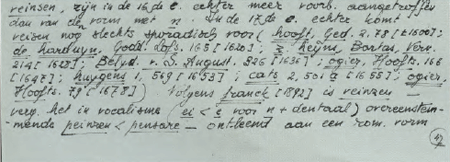 reinsen, zijn in de 16de e. echter meer voorb. aangetroffen
dan van de vorm met n. In de 17de e. echter komt
reizen nog slechts sporadisch voor (hooft, Ged. 2, 78 [± 1600];
de harduyn, Godd. Lofs. 165 [1620]; z. heyns, Bartas, Verv.
214 [1628]; Belyd. v. S. August. 326 [1636]; ogier, Hooft. 166
[1647]; huygens 1, 569 [1653]; cats 2, 501 a [1655]; ogier,
Hooft. 79 [1678]) Volgens franck [1892] is reinzen —
verg. het in vocalisme (ei < e voor n + dentaal) overeenstem-
mende peinzen < pensare — ontleend aan een rom. vorm